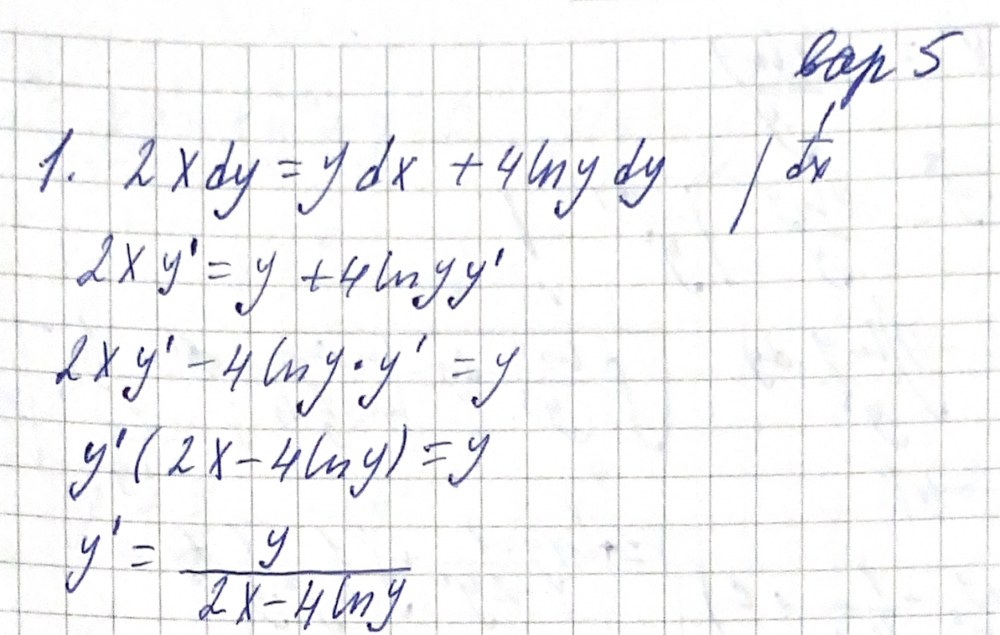 вар 5
1. 2xdy = y dx + 4 ln y dy | 1/dx
2x y' = y + 4 ln y y'
2x y' - 4 ln y · y' = y
y' (2x - 4 ln y) = y
y' = y / (2x - 4 ln y)